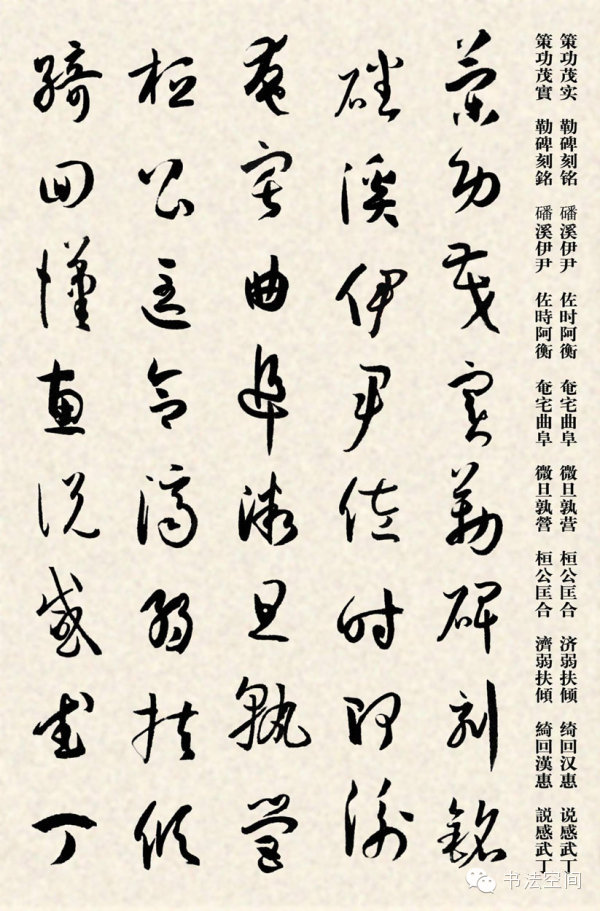 策功茂实 勒碑刻铭 磻溪伊尹 佐时阿衡 奄宅曲阜 微旦孰营 桓公匡合 济弱扶倾 绮回汉惠 说感武丁
策功茂實 勒碑刻銘 磻溪伊尹 佐時阿衡 奄宅曲阜 微旦孰營 桓公匡合 濟弱扶傾 綺回漢惠 説感武丁
策功茂實勒碑刻銘
磻溪伊尹佐时阿衡
奄宅曲阜微旦孰營
桓公匡合濟弱扶傾
綺回漢惠说感武丁
书法空间